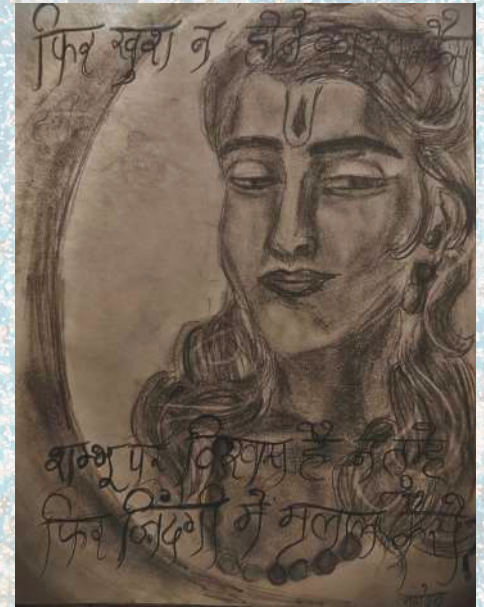 फिर खुश न होने का
शम्भू पर विश्वास है
फिर जिंदगी में मलाल कैसा